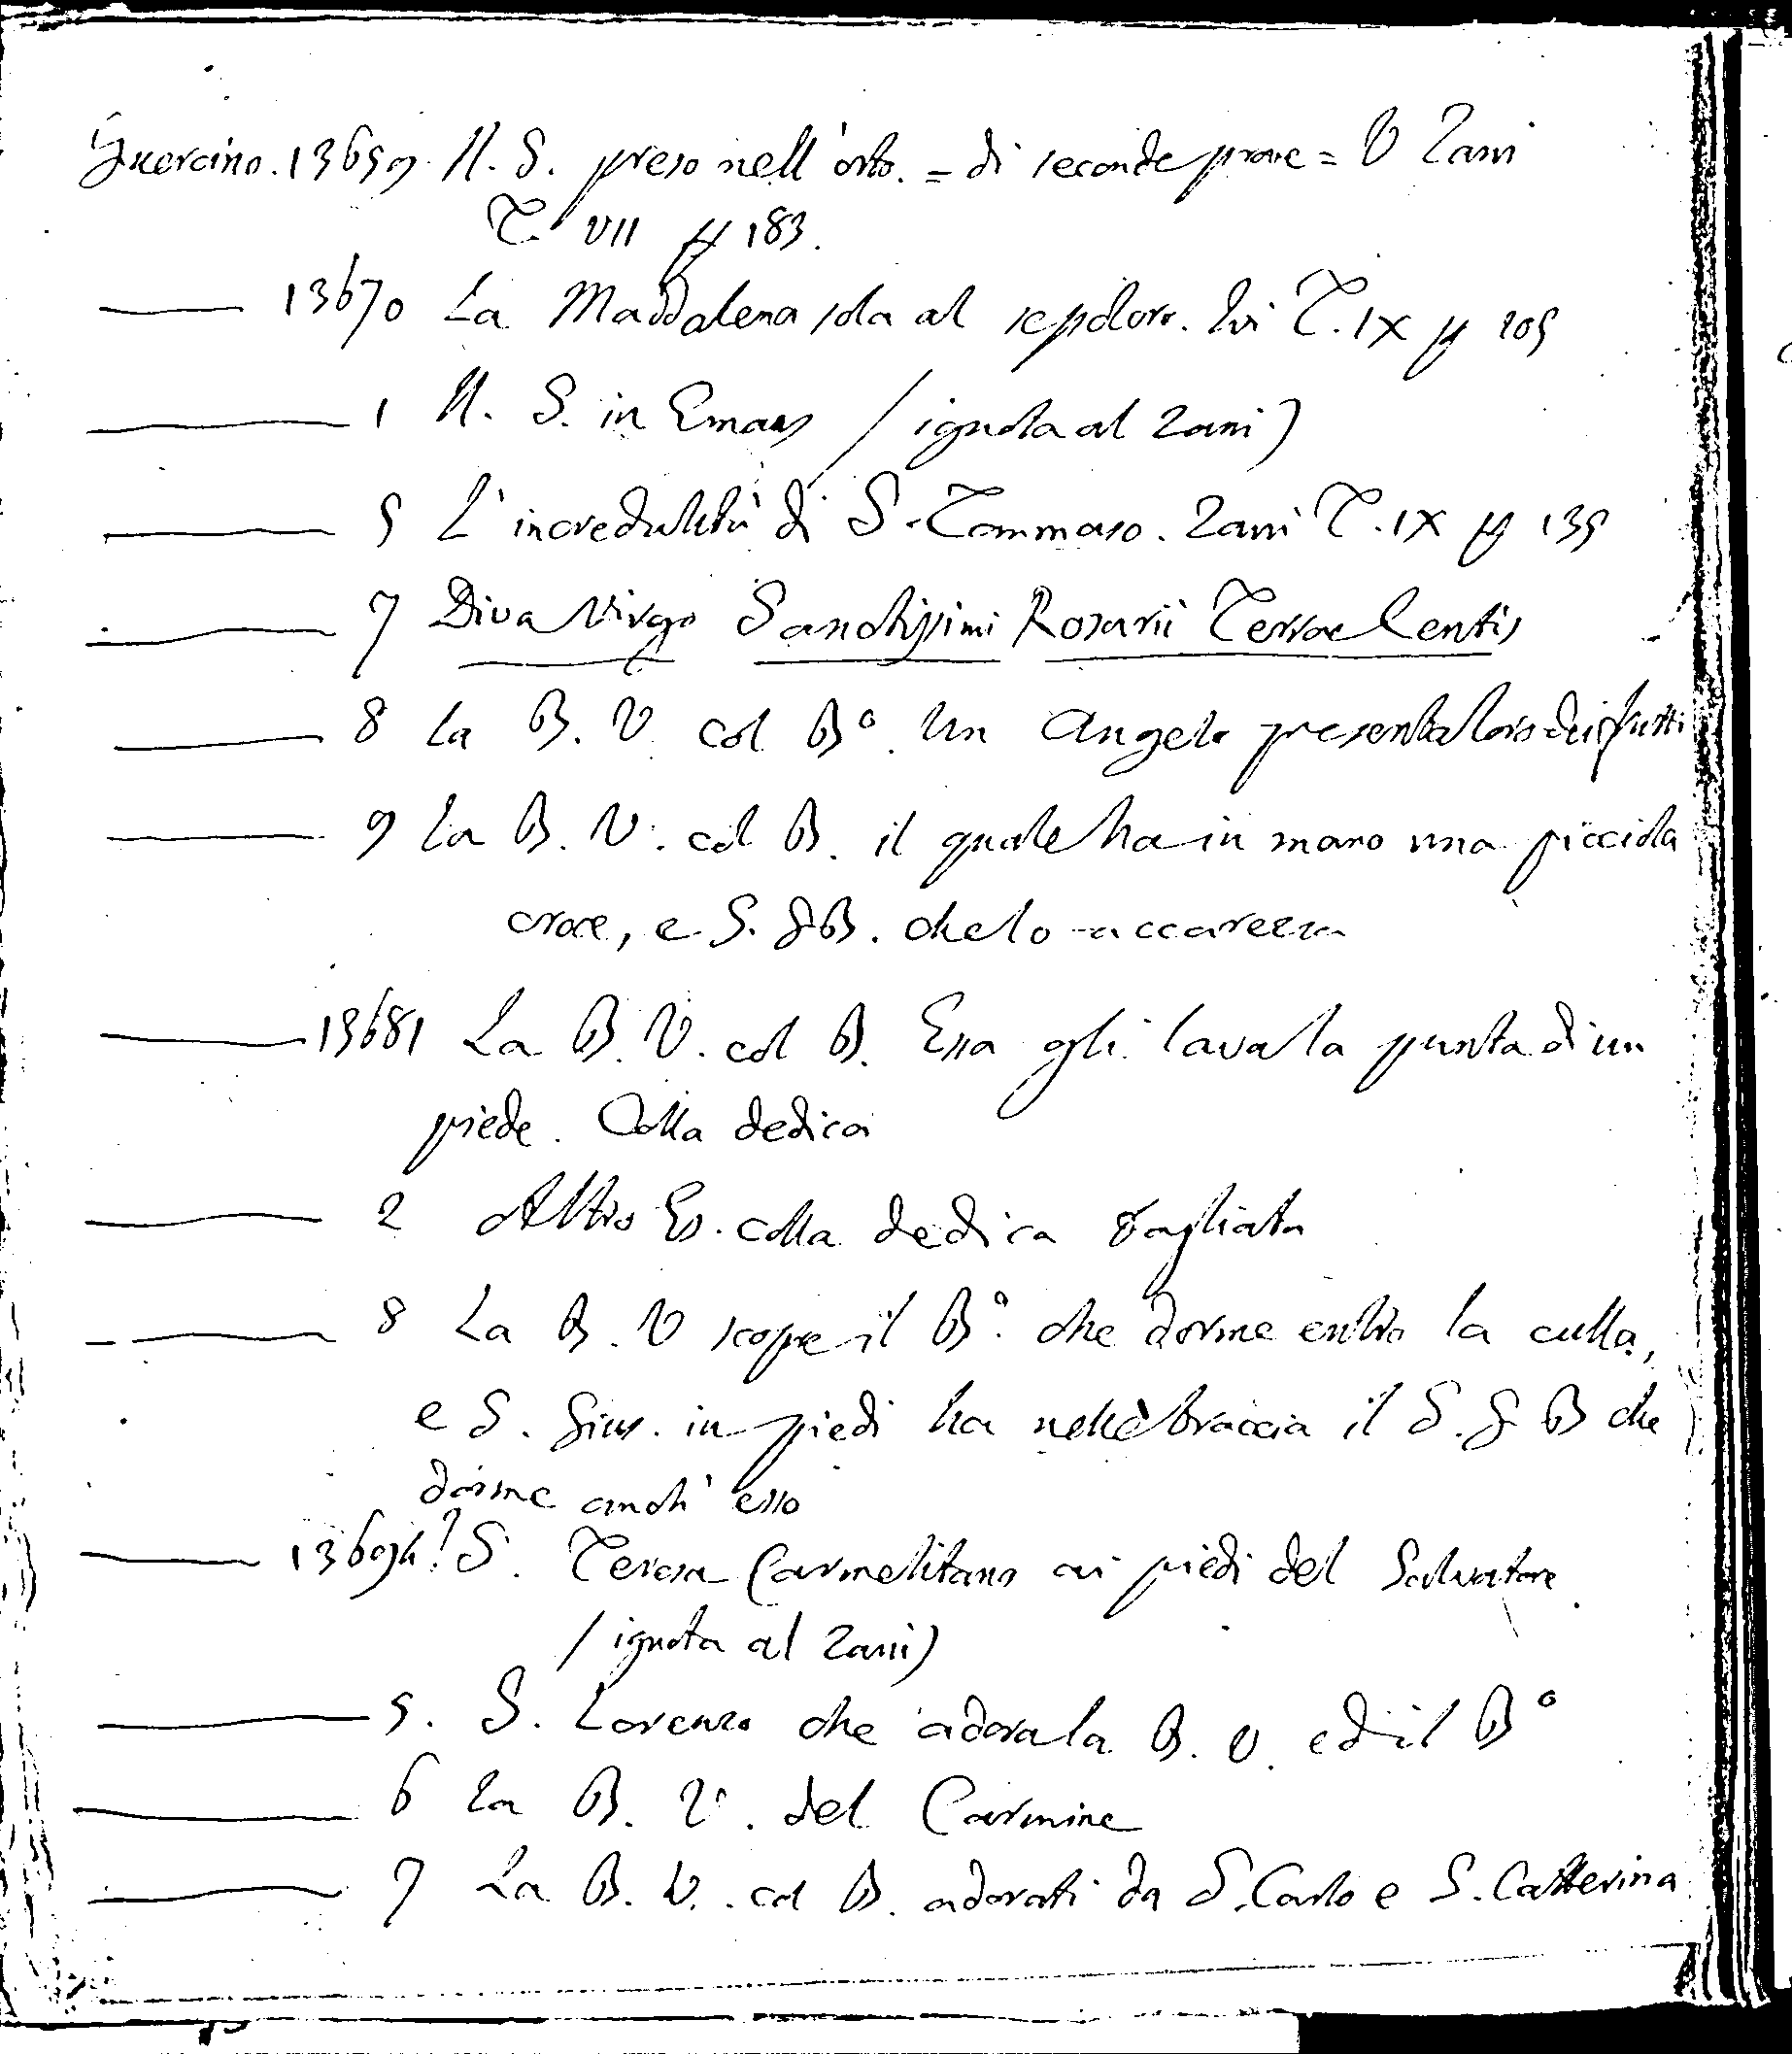 Guercino. 13659. N. S. preso nell'orto. = di seconde prove = V Zani
T. VII pg 183.
—— 13670 La Maddalena sola al sepolcro. Ivi T. IX pg 205
—— 1 N. S. in Emaus / ignota al Zani)
—— 5 L'incredulità di S. Tommaso. Zani T. IX pg 135
—— 7 Diva Virgo Sanctissimi Rosarii Terrae Centis
—— 8 La B. V. col B°. Un Angelo presenta loro dei frutti
—— 9 La B. V. col B. il quale ha in mano una picciola
croce, e S. G B. che lo accarezza
—— 13681 La B. V. col B. Essa gli lava la punta di un
piede. Colla dedica
—— 2 Altro Es. colla dedica tagliata
—— 8 La B. V scopre il B°. che dorme entro la culla,
e S. Gius. in piedi ha nelle braccia il S. G B che
dorme anch'esso
—— 13694? S. Teresa Carmelitana ai piedi del Salvatore.
/ ignota al Zani)
—— 5. S. Lorenzo che adora la B. V. ed il B°
—— 6 La B. V. del Carmine
—— 7 La B. V. col B. adorati da S. Carlo e S. Catterina